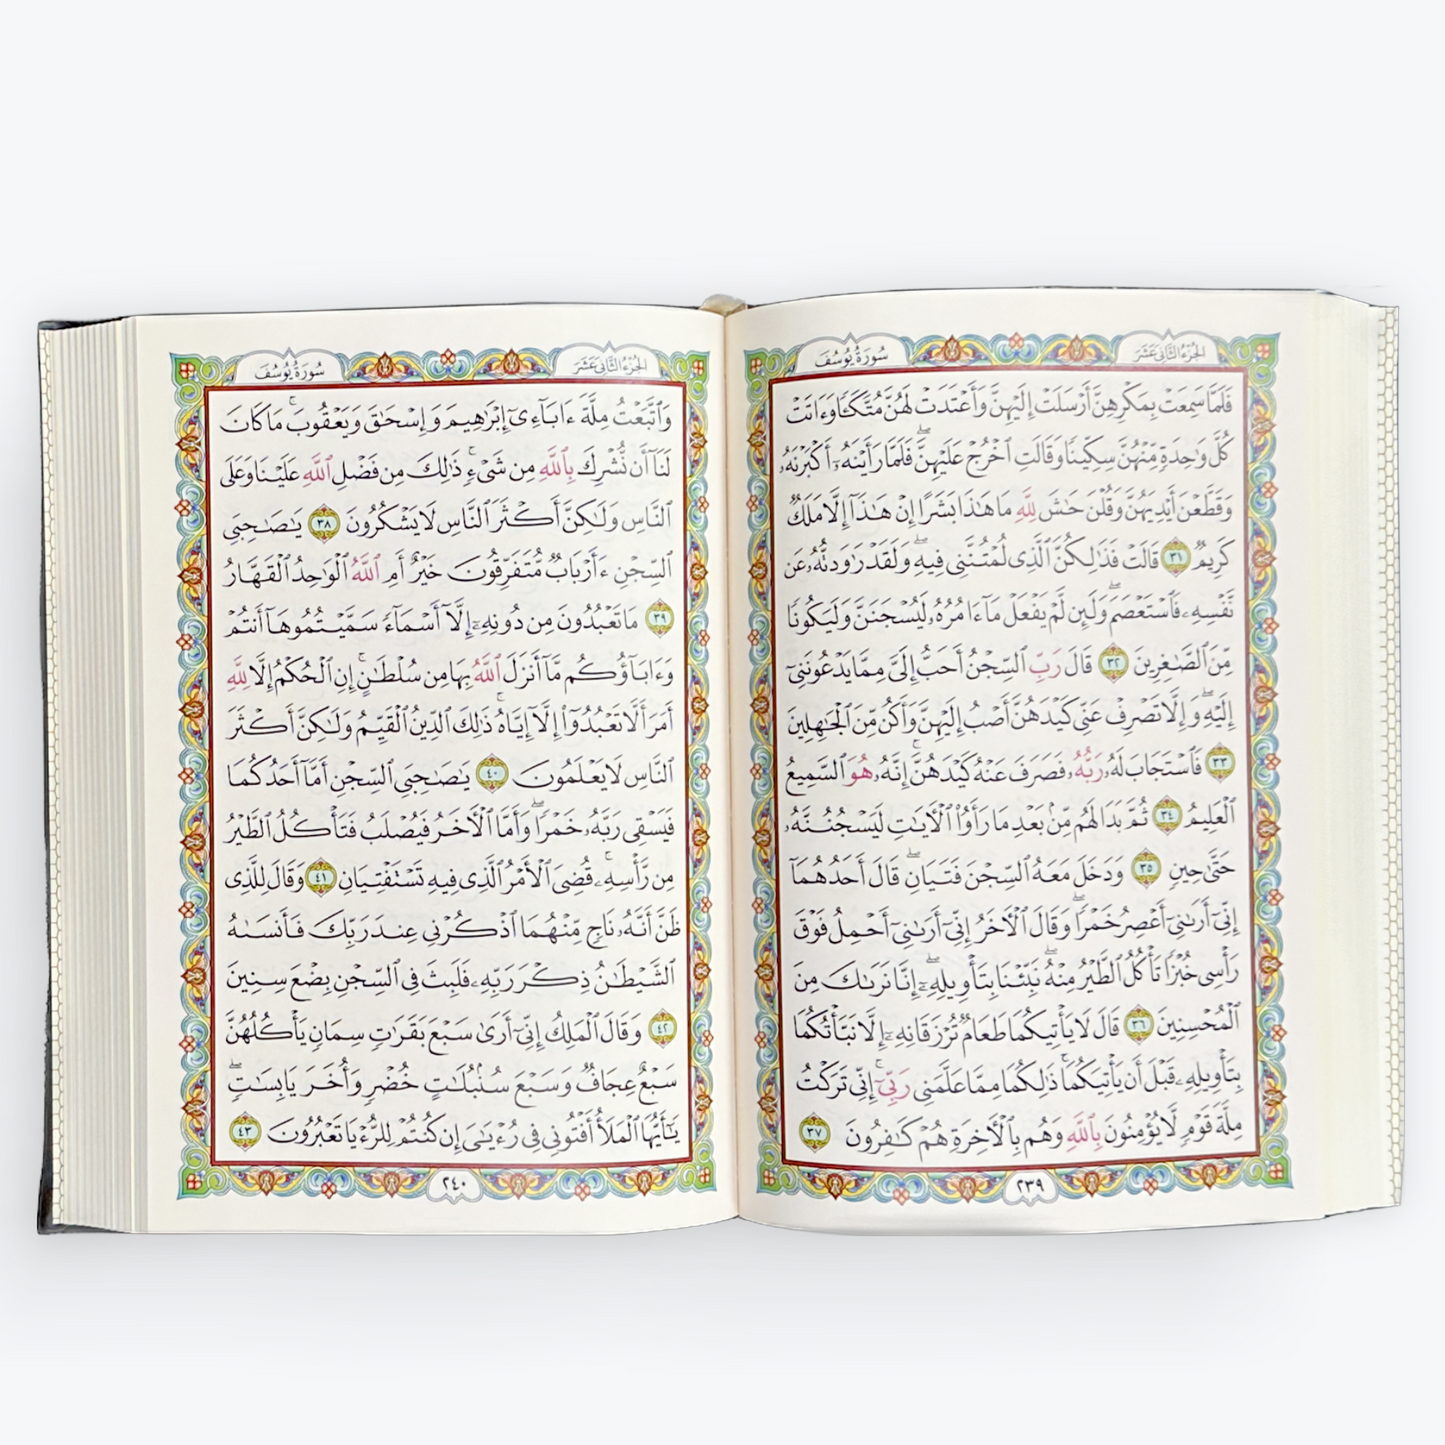 سُورَةُ يُوسُفَ
الجُزءُ الثَّانِي عَشَرَ
فَلَمَّا سَمِعَتۡ بِمَكۡرِهِنَّ أَرۡسَلَتۡ إِلَيۡهِنَّ وَأَعۡتَدَتۡ لَهُنَّ مُتَّكَـٔٗا وَءَاتَتۡ
كُلَّ وَٰحِدَةٖ مِّنۡهُنَّ سِكِّينٗا وَقَالَتِ ٱخۡرُجۡ عَلَيۡهِنَّۖ فَلَمَّا رَأَيۡنَهُۥٓ أَكۡبَرۡنَهُۥ
وَقَطَّعۡنَ أَيۡدِيَهُنَّ وَقُلۡنَ حَٰشَ لِلَّهِ مَا هَٰذَا بَشَرًا إِنۡ هَٰذَآ إِلَّا مَلَكٞ
كَرِيمٞ ٣١ قَالَتۡ فَذَٰلِكُنَّ ٱلَّذِي لُمۡتُنَّنِي فِيهِۖ وَلَقَدۡ رَٰوَدتُّهُۥ عَن
نَّفۡسِهِۦ فَٱسۡتَعۡصَمَۖ وَلَئِن لَّمۡ يَفۡعَلۡ مَآ ءَامُرُهُۥ لَيُسۡجَنَنَّ وَلَيَكُونٗا
مِّنَ ٱلصَّٰغِرِينَ ٣٢ قَالَ رَبِّ ٱلسِّجۡنُ أَحَبُّ إِلَيَّ مِمَّا يَدۡعُونَنِيٓ
إِلَيۡهِۖ وَإِلَّا تَصۡرِفۡ عَنِّي كَيۡدَهُنَّ أَصۡبُ إِلَيۡهِنَّ وَأَكُن مِّنَ ٱلۡجَٰهِلِينَ
٣٣ فَٱسۡتَجَابَ لَهُۥ رَبُّهُۥ فَصَرَفَ عَنۡهُ كَيۡدَهُنَّۚ إِنَّهُۥ هُوَ ٱلسَّمِيعُ
ٱلۡعَلِيمُ ٣٤ ثُمَّ بَدَا لَهُم مِّنۢ بَعۡدِ مَا رَأَوُاْ ٱلۡأٓيَٰتِ لَيَسۡجُنُنَّهُۥ
حَتَّىٰ حِينٖ ٣٥ وَدَخَلَ مَعَهُ ٱلسِّجۡنَ فَتَيَانِۖ قَالَ أَحَدُهُمَآ
إِنِّيٓ أَرَىٰنِيٓ أَعۡصِرُ خَمۡرٗاۖ وَقَالَ ٱلۡأٓخَرُ إِنِّيٓ أَرَىٰنِيٓ أَحۡمِلُ فَوۡقَ
رَأۡسِي خُبۡزٗا تَأۡكُلُ ٱلطَّيۡرُ مِنۡهُۖ نَبِّئۡنَا بِتَأۡوِيلِهِۦٓۖ إِنَّا نَرَىٰكَ مِنَ
ٱلۡمُحۡسِنِينَ ٣٦ قَالَ لَا يَأۡتِيكُمَا طَعَامٞ تُرۡزَقَانِهِۦٓ إِلَّا نَبَّأۡتُكُمَا
بِتَأۡوِيلِهِۦ قَبۡلَ أَن يَأۡتِيَكُمَاۚ ذَٰلِكُمَا مِمَّا عَلَّمَنِي رَبِّيٓۚ إِنِّي تَرَكۡتُ
مِلَّةَ قَوۡمٖ لَّا يُؤۡمِنُونَ بِٱللَّهِ وَهُم بِٱلۡأٓخِرَةِ هُمۡ كَٰفِرُونَ ٣٧
٢٣٩
سُورَةُ يُوسُفَ
الجُزءُ الثَّانِي عَشَرَ
وَٱتَّبَعۡتُ مِلَّةَ ءَابَآءِيٓ إِبۡرَٰهِيمَ وَإِسۡحَٰقَ وَيَعۡقُوبَۚ مَا كَانَ
لَنَآ أَن نُّشۡرِكَ بِٱللَّهِ مِن شَيۡءٖۚ ذَٰلِكَ مِن فَضۡلِ ٱللَّهِ عَلَيۡنَا وَعَلَى
ٱلنَّاسِ وَلَٰكِنَّ أَكۡثَرَ ٱلنَّاسِ لَا يَشۡكُرُونَ ٣٨ يَٰصَٰحِبَيِ
ٱلسِّجۡنِ ءَأَرۡبَابٞ مُّتَفَرِّقُونَ خَيۡرٌ أَمِ ٱللَّهُ ٱلۡوَٰحِدُ ٱلۡقَهَّارُ
٣٩ مَا تَعۡبُدُونَ مِن دُونِهِۦٓ إِلَّآ أَسۡمَآءٗ سَمَّيۡتُمُوهَآ أَنتُمۡ
وَءَابَآؤُكُم مَّآ أَنزَلَ ٱللَّهُ بِهَا مِن سُلۡطَٰنٍۚ إِنِ ٱلۡحُكۡمُ إِلَّا لِلَّهِ
أَمَرَ أَلَّا تَعۡبُدُوٓاْ إِلَّآ إِيَّاهُۚ ذَٰلِكَ ٱلدِّينُ ٱلۡقَيِّمُ وَلَٰكِنَّ أَكۡثَرَ
ٱلنَّاسِ لَا يَعۡلَمُونَ ٤٠ يَٰصَٰحِبَيِ ٱلسِّجۡنِ أَمَّآ أَحَدُكُمَا
فَيَسۡقِي رَبَّهُۥ خَمۡرٗاۖ وَأَمَّا ٱلۡأٓخَرُ فَيُصۡلَبُ فَتَأۡكُلُ ٱلطَّيۡرُ
مِن رَّأۡسِهِۦۚ قُضِيَ ٱلۡأَمۡرُ ٱلَّذِي فِيهِ تَسۡتَفۡتِيَانِ ٤١ وَقَالَ لِلَّذِي
ظَنَّ أَنَّهُۥ نَاجٖ مِّنۡهُمَا ٱذۡكُرۡنِي عِندَ رَبِّكَ فَأَنسَىٰهُ
ٱلشَّيۡطَٰنُ ذِكۡرَ رَبِّهِۦ فَلَبِثَ فِي ٱلسِّجۡنِ بِضۡعَ سِنِينَ
٤٢ وَقَالَ ٱلۡمَلِكُ إِنِّيٓ أَرَىٰ سَبۡعَ بَقَرَٰتٖ سِمَانٖ يَأۡكُلُهُنَّ
سَبۡعٌ عِجَافٞ وَسَبۡعَ سُنۢبُلَٰتٍ خُضۡرٖ وَأُخَرَ يَابِسَٰتٖۖ
يَٰٓأَيُّهَا ٱلۡمَلَأُ أَفۡتُونِي فِي رُءۡيَٰيَ إِن كُنتُمۡ لِلرُّءۡيَا تَعۡبُرُونَ ٤٣
٢٤٠